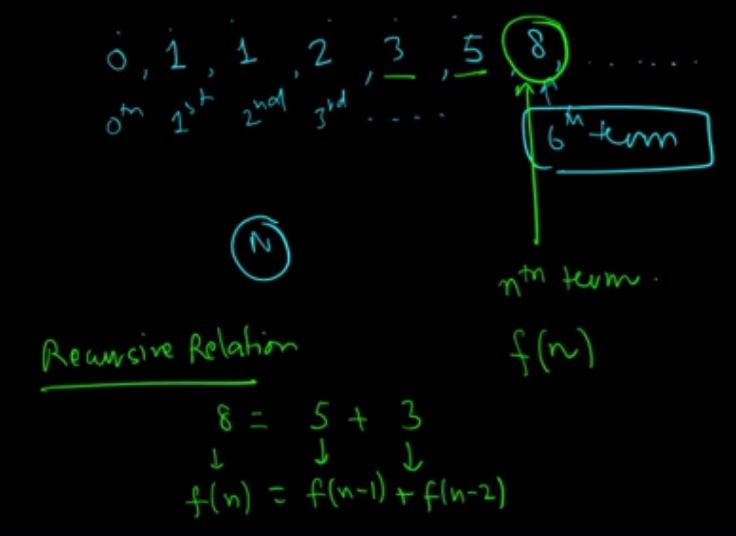 0, 1, 1, 2, 3, 5, 8, .......
0th 1st 2nd 3rd .....
6th term
N
nth term.
f(n)
Recursive Relation
8 = 5 + 3
↓ ↓ ↓
f(n) = f(n-1) + f(n-2)